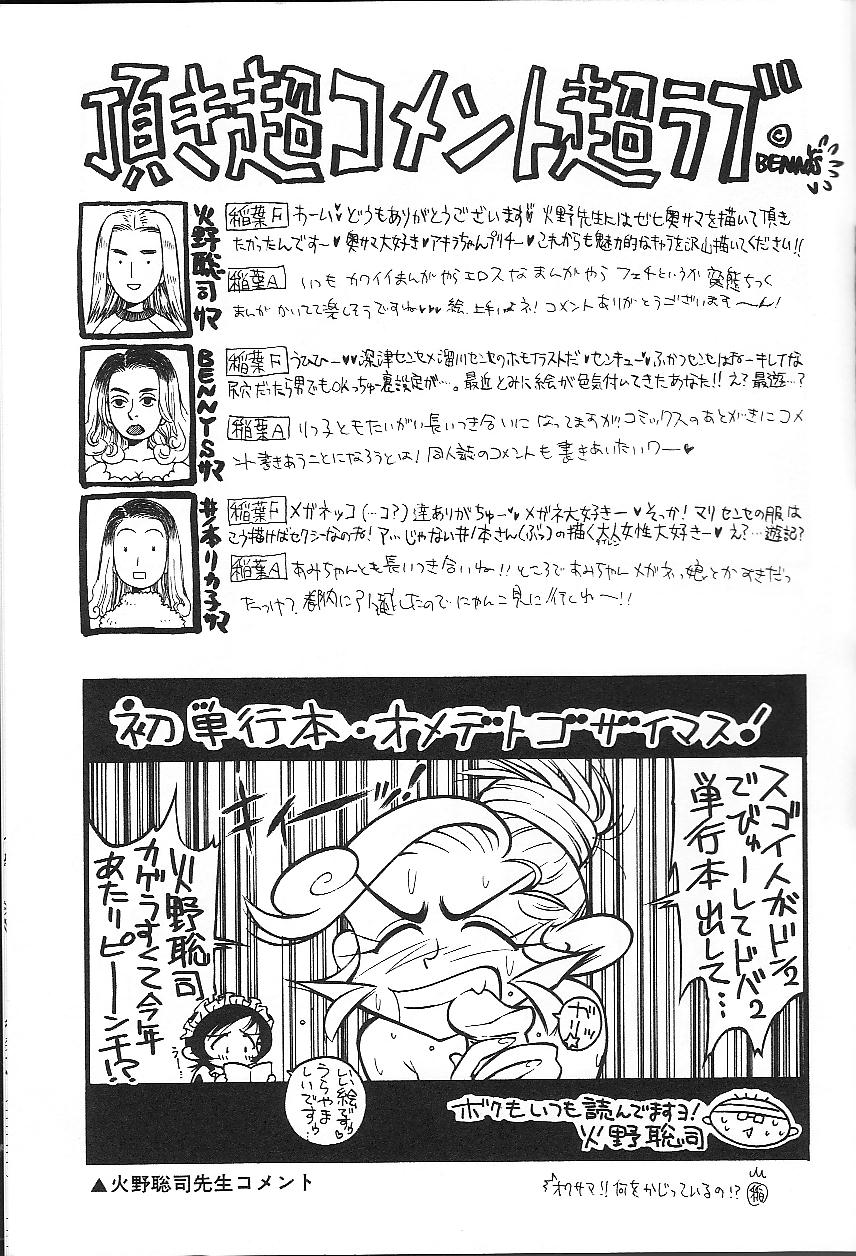 頂き超コメント超ラブ。
© BENNYS
火野聡司サマ
稲葉F おーい♥どうもありがとうございます♥火野先生にはぜヒ奥サマを描いて頂き
たかったんです〜♥奥サマ大好き♥アキラちゃんプリチー♥これからも魅力的なキャラを沢山描いてください!!
稲葉A いつもカワイイまんがやらエロスなまんがやらフェチというか変態ちっく
まんがかいてて楽しそうですね♥♥♥絵、上手いよネ!コメントありがとうございます〜ん!
BENNY'Sサマ
稲葉F うひひー♥♥深津センセ×溜川センセのホモイラストだ♥センキュー♥ふかつセンセはおーキしてな
尻穴だったら男でもOKっちゅー裏設定が…。最近とみに絵が色気付いてきたあなた!!え?最遊…?
稲葉A りっ子ともたいがい長いつき合いになってますがコミックスのあとがきにコメ
ント書きあうことになろうとは!同人誌のコメントも書きあいたいワー♥
井ノ本リカ子サマ
稲葉F メガネッコ(…コ?)達ありがちゅー♥メガネ大好きー♥そっか!マリセンセの服は
こう描けばセクシーなのね!ア…じゃない井ノ本さん(ぷっ)の描く大人女性大好きー♥え?…遊記?
稲葉A あみちゃんとも長いつき合いね!!ところであみちゃんメガネっ娘とかすきだっ
たっけ?都内に引越したのでにゃんこ見に行くわ〜!!
初単行本・オメデトゴザイマス!
スゴイ人がドン2
でびゅーしてドバ2
単行本出して…
キィーッ!
火野聡司
カゲうすくて今年
あたりピーンチ!?
ガリッ
うー…
いい絵ですゥ
うらやま
しいですゥ…
ボクもいつも読んでますヨ!
火野聡司
▲火野聡司先生コメント
オクサマ!!何をかじっているの!?
稲